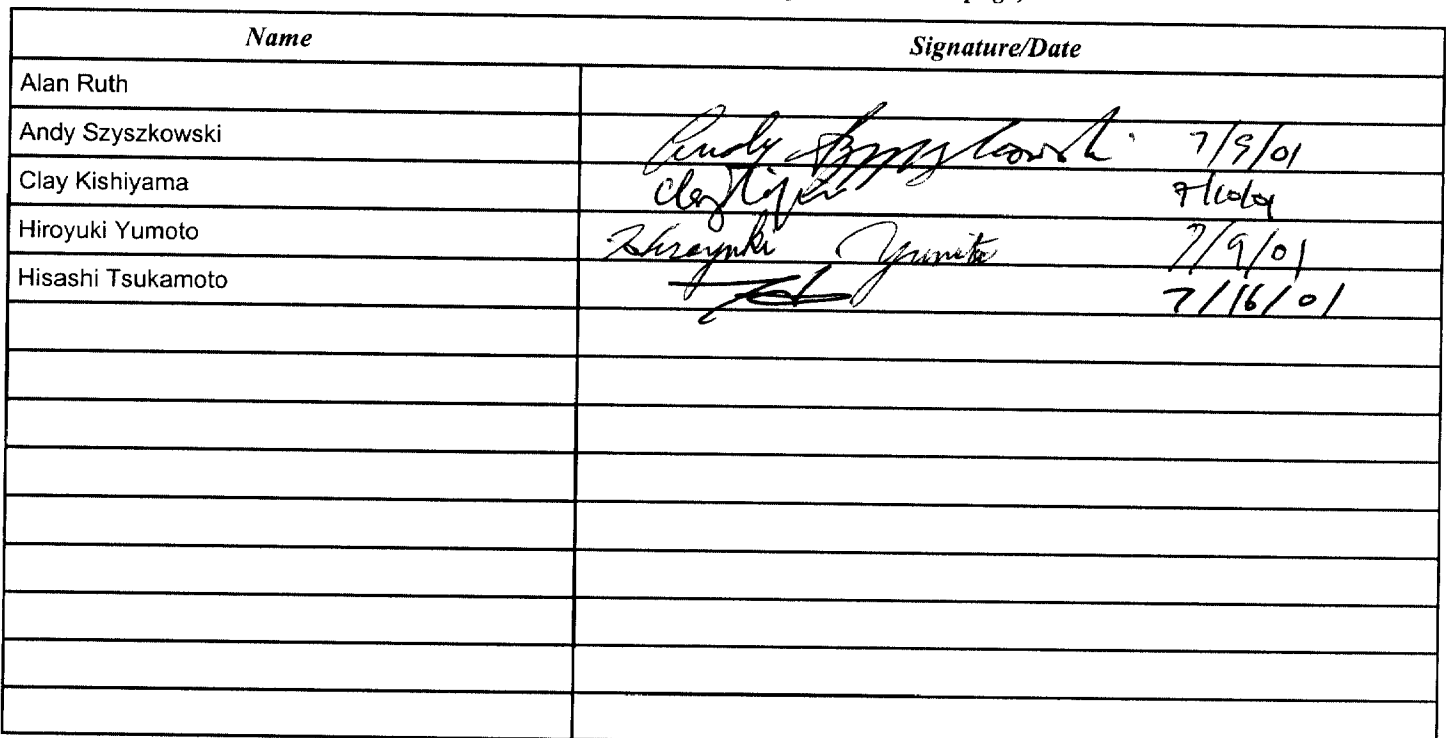 Name Signature/Date
Alan Ruth
Andy Szyszkowski Andy Szyszkowski 7/9/01
Clay Kishiyama Clay
Hiroyuki Yumoto Hiroyuki Yumoto 7/9/01
Hisashi Tsukamoto 7/16/01